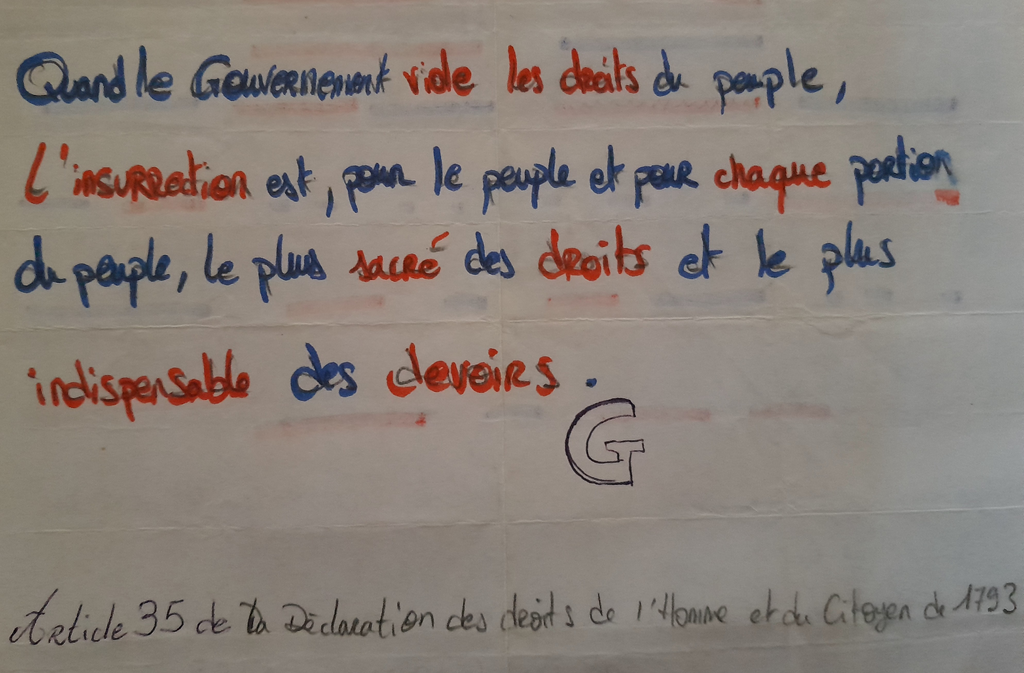 Quand le Gouvernement viole les droits du peuple,
L'insurrection est, pour le peuple et pour chaque portion
du peuple, le plus sacré des droits et le plus
indispensable des devoirs.
G
Article 35 de la Déclaration des droits de l'Homme et du Citoyen de 1793